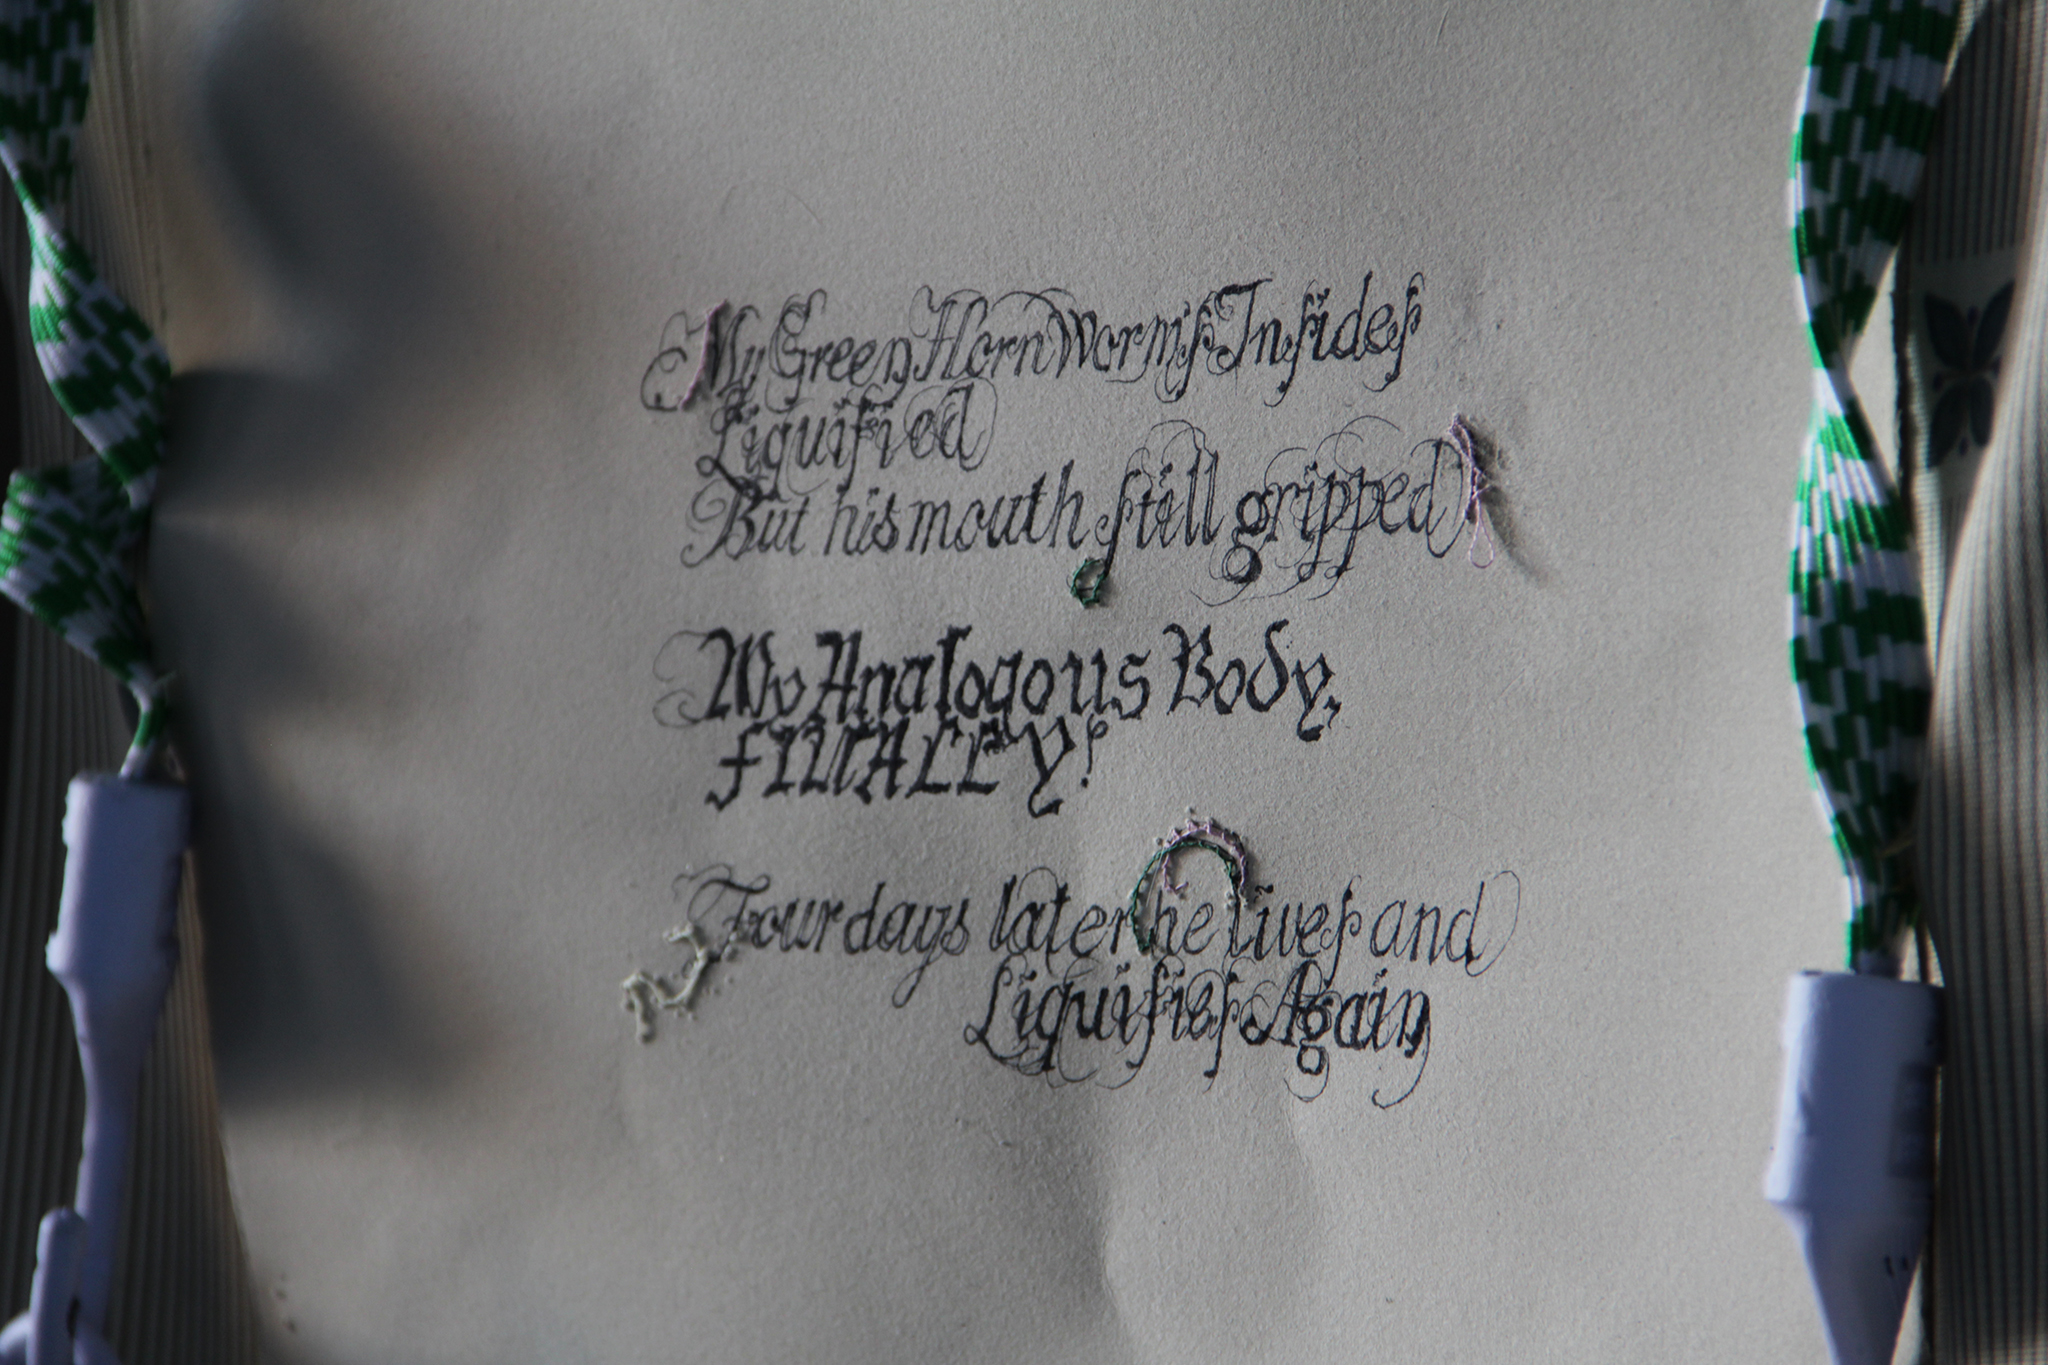 My Green Horn Worm's Insides
Liquified
But his mouth still gripped
My Analogous Body,
FINALLY!
Four days later he lives and
Liquifies Again